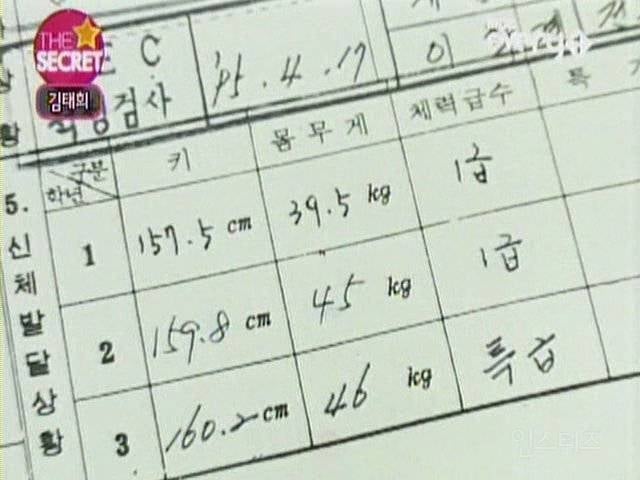 THE
SECRET
김태희
C
'95.4.17
적성검사
상
황
이
특
구분
학년
키
몸무게
체력급수
5.
신체발달상황
1
157.5 cm
39.5 kg
1급
2
159.8 cm
45 kg
1급
3
160.2 cm
46 kg
특급
인스티즈